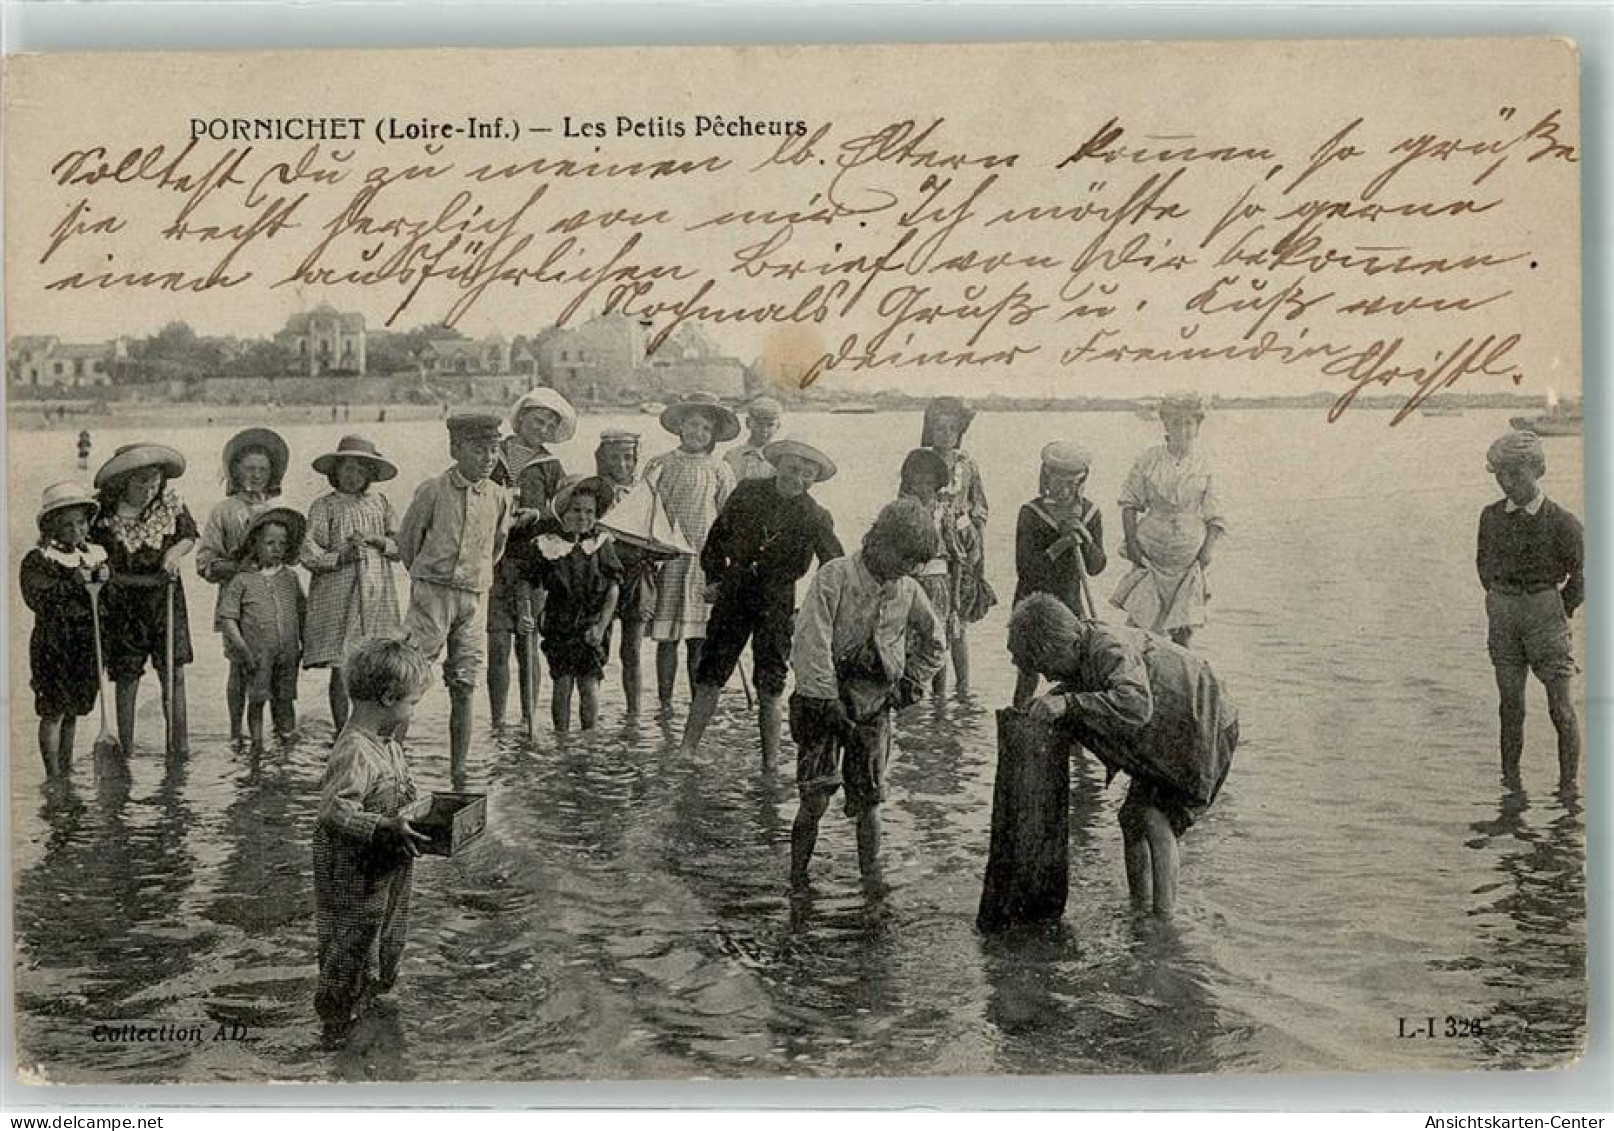 PORNICHET (Loire-Inf.) — Les Petits Pêcheurs
Solltest Du zu meinen lb. Eltern kom̅en, so grüße
sie recht herzlich von mir. Ich möchte so gerne
einen ausführlichen Brief von Dir bekom̅en.
Nochmals Gruß u. Kuß von
Deiner Freundin Christl.
Collection AD
L-I 326
delcampe.net
Ansichtskarten-Center